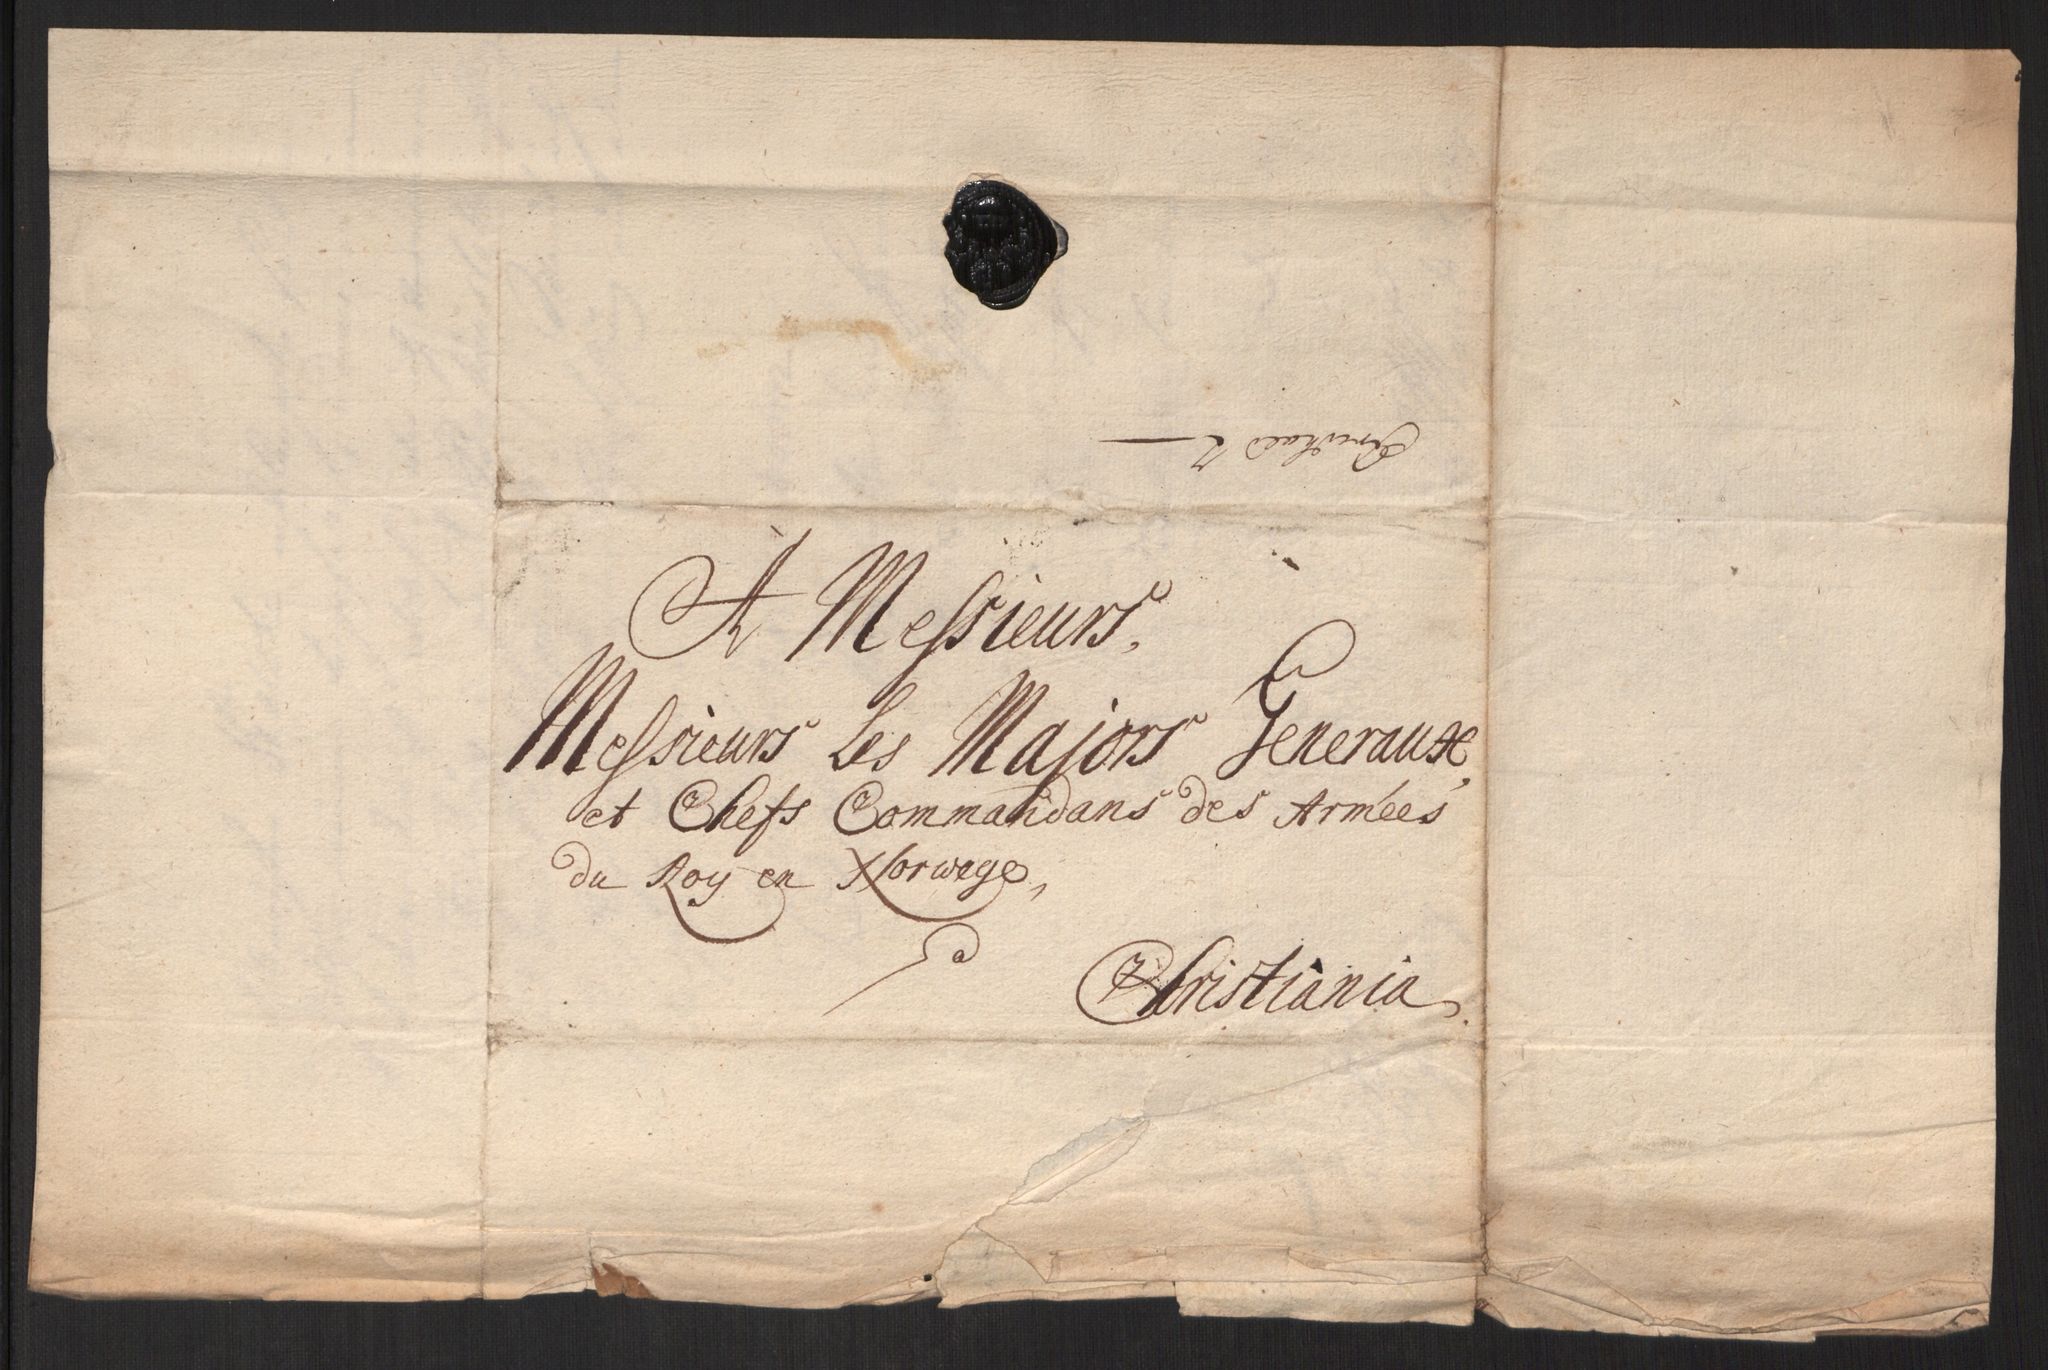 A Messieurs,
Messieurs Les Majors Generaux,
et Chefs Commandans des Armées
du Roy en Norwege,
a
Christiania.